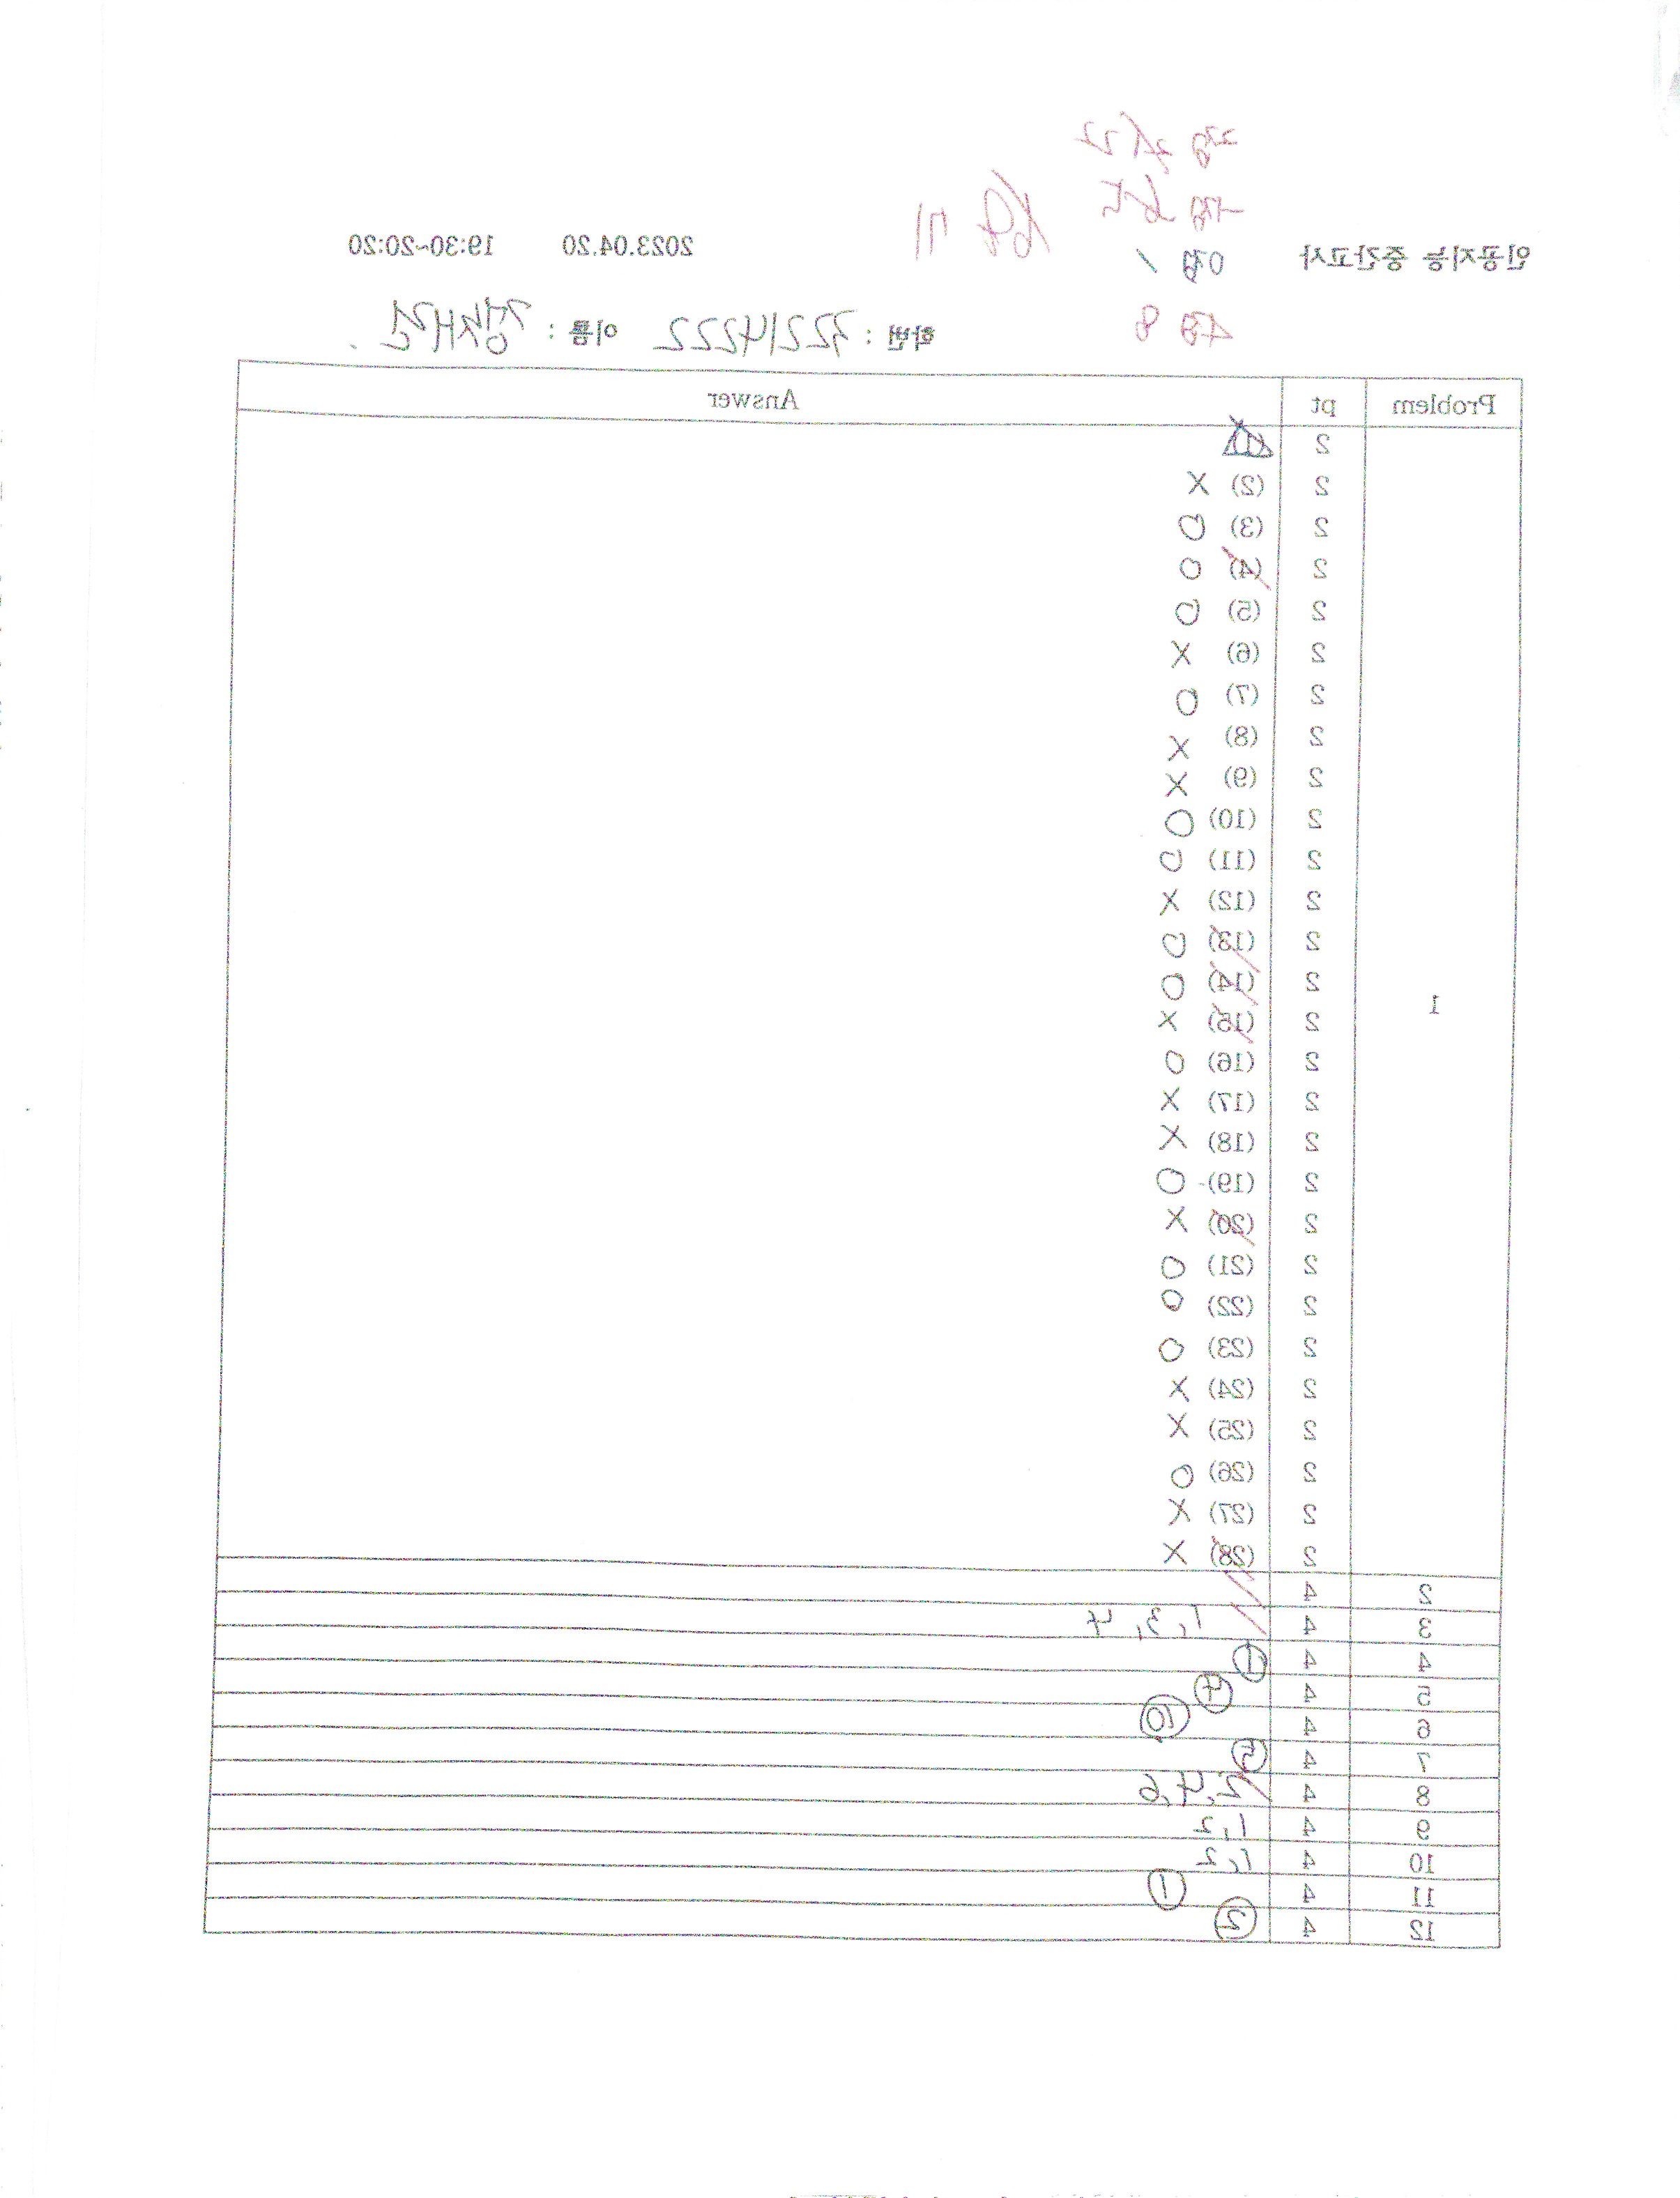 정 22
부정 5
인공지능 중간고사 0정 1 71 2023.04.20 19:30~20:20
4정 8 학번 : 32214222 이름 :
Problem pt Answer
1
2
2 (2) X
2 (3) O
2 (4) O
2 (5) O
2 (6) X
2 (7) O
2 (8) X
2 (9) X
2 (10) O
2 (11) O
2 (12) X
2 (13) O
2 (14) O
2 (15) X
2 (16) O
2 (17) X
2 (18) X
2 (19) O
2 (20) X
2 (21) O
2 (22) O
2 (23) O
2 (24) X
2 (25) X
2 (26) O
2 (27) X
2 (28) X
2 4
3 4 1, 3, 4
4 4 ①
5 4 ④
6 4 ⑩
7 4 ⑤
8 4 2, 4, 6
9 4 1, 2
10 4 1, 2
11 4 ①
12 4 ②